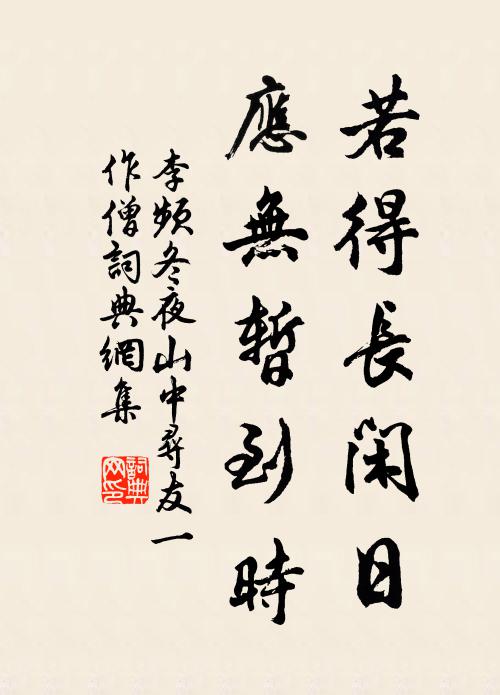 若得長閑日
應無暫到時
李頻冬夜山中尋友一
作僧詞典網集
詞典
网印